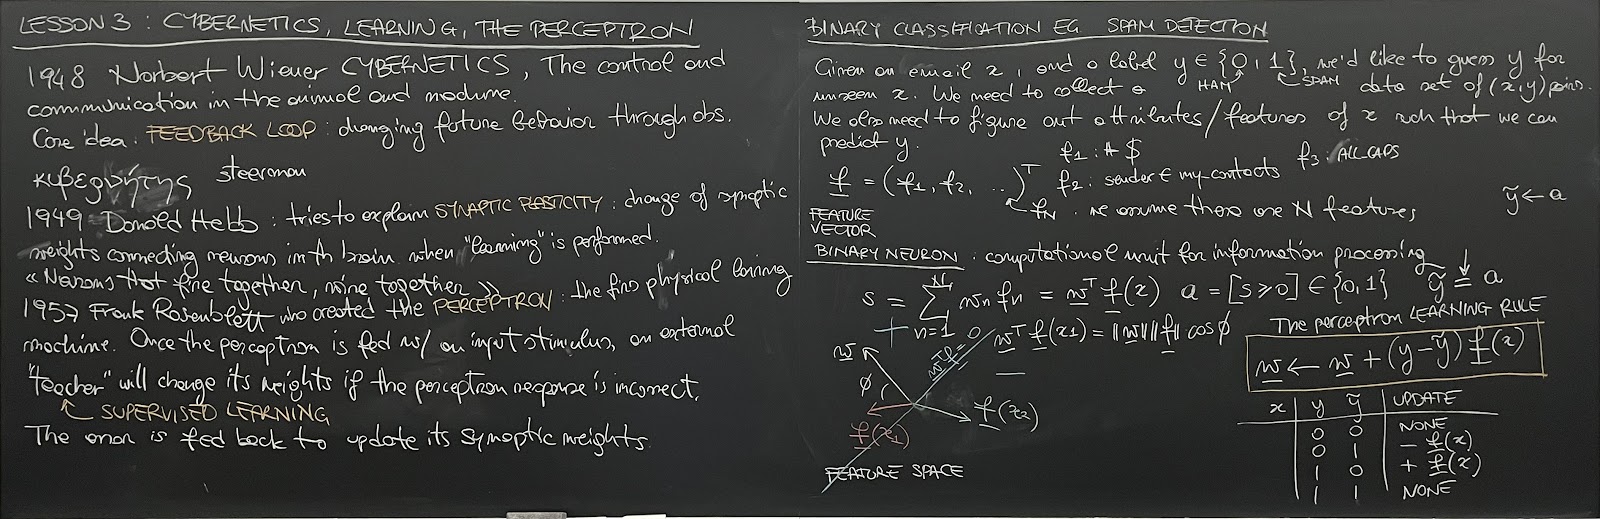 LESSON 3 : CYBERNETICS, LEARNING, THE PERCEPTRON
1948 Norbert Wiener CYBERNETICS, The control and
communication in the animal and machine.
Core idea: FEEDBACK LOOP: changing future behavior through obs.
κυβερνήτης steersman
1949 Donald Hebb : tries to explain SYNAPTIC PLASTICITY : change of synaptic
weights connecting neurons in th brain when "learning" is performed.
« Neurons that fire together, wire together »
1957 Frank Rosenblatt who created the PERCEPTRON : the firs physical learning
machine. Once the perceptron is fed w/ an input stimulus, an external
"teacher" will change its weights if the perceptron response is incorrect.
SUPERVISED LEARNING
The error is fed back to update its synaptic weights.
BINARY CLASSIFICATION EG. SPAM DETECTION
Given an email x, and a label y ∈ {0, 1}, we'd like to guess y for
HAM SPAM
unseen x. We need to collect a data set of (x,y) pairs.
We also need to figure out attributes/features of x such that we can
predict y.
f1 : # $
f3 : ALL CAPS
f = (f1, f2, ..)ᵀ f2 : sender ∈ my-contacts
fN . we assume there are N features
ỹ ← a
FEATURE
VECTOR
BINARY NEURON : computational unit for information processing
s = Σ n=1 N wn fn = wᵀ f(x) a = [s ⩾ 0] ∈ {0,1} ỹ = a
wᵀ f(x1) = ‖w‖‖f‖ cos ϕ
+
w
wᵀf = 0
ϕ
f(x1)
f(x2)
FEATURE SPACE
The perceptron LEARNING RULE
w ← w + (y - ỹ) f(x)
x y ỹ UPDATE
0 0 NONE
0 1 - f(x)
1 0 + f(x)
1 1 NONE